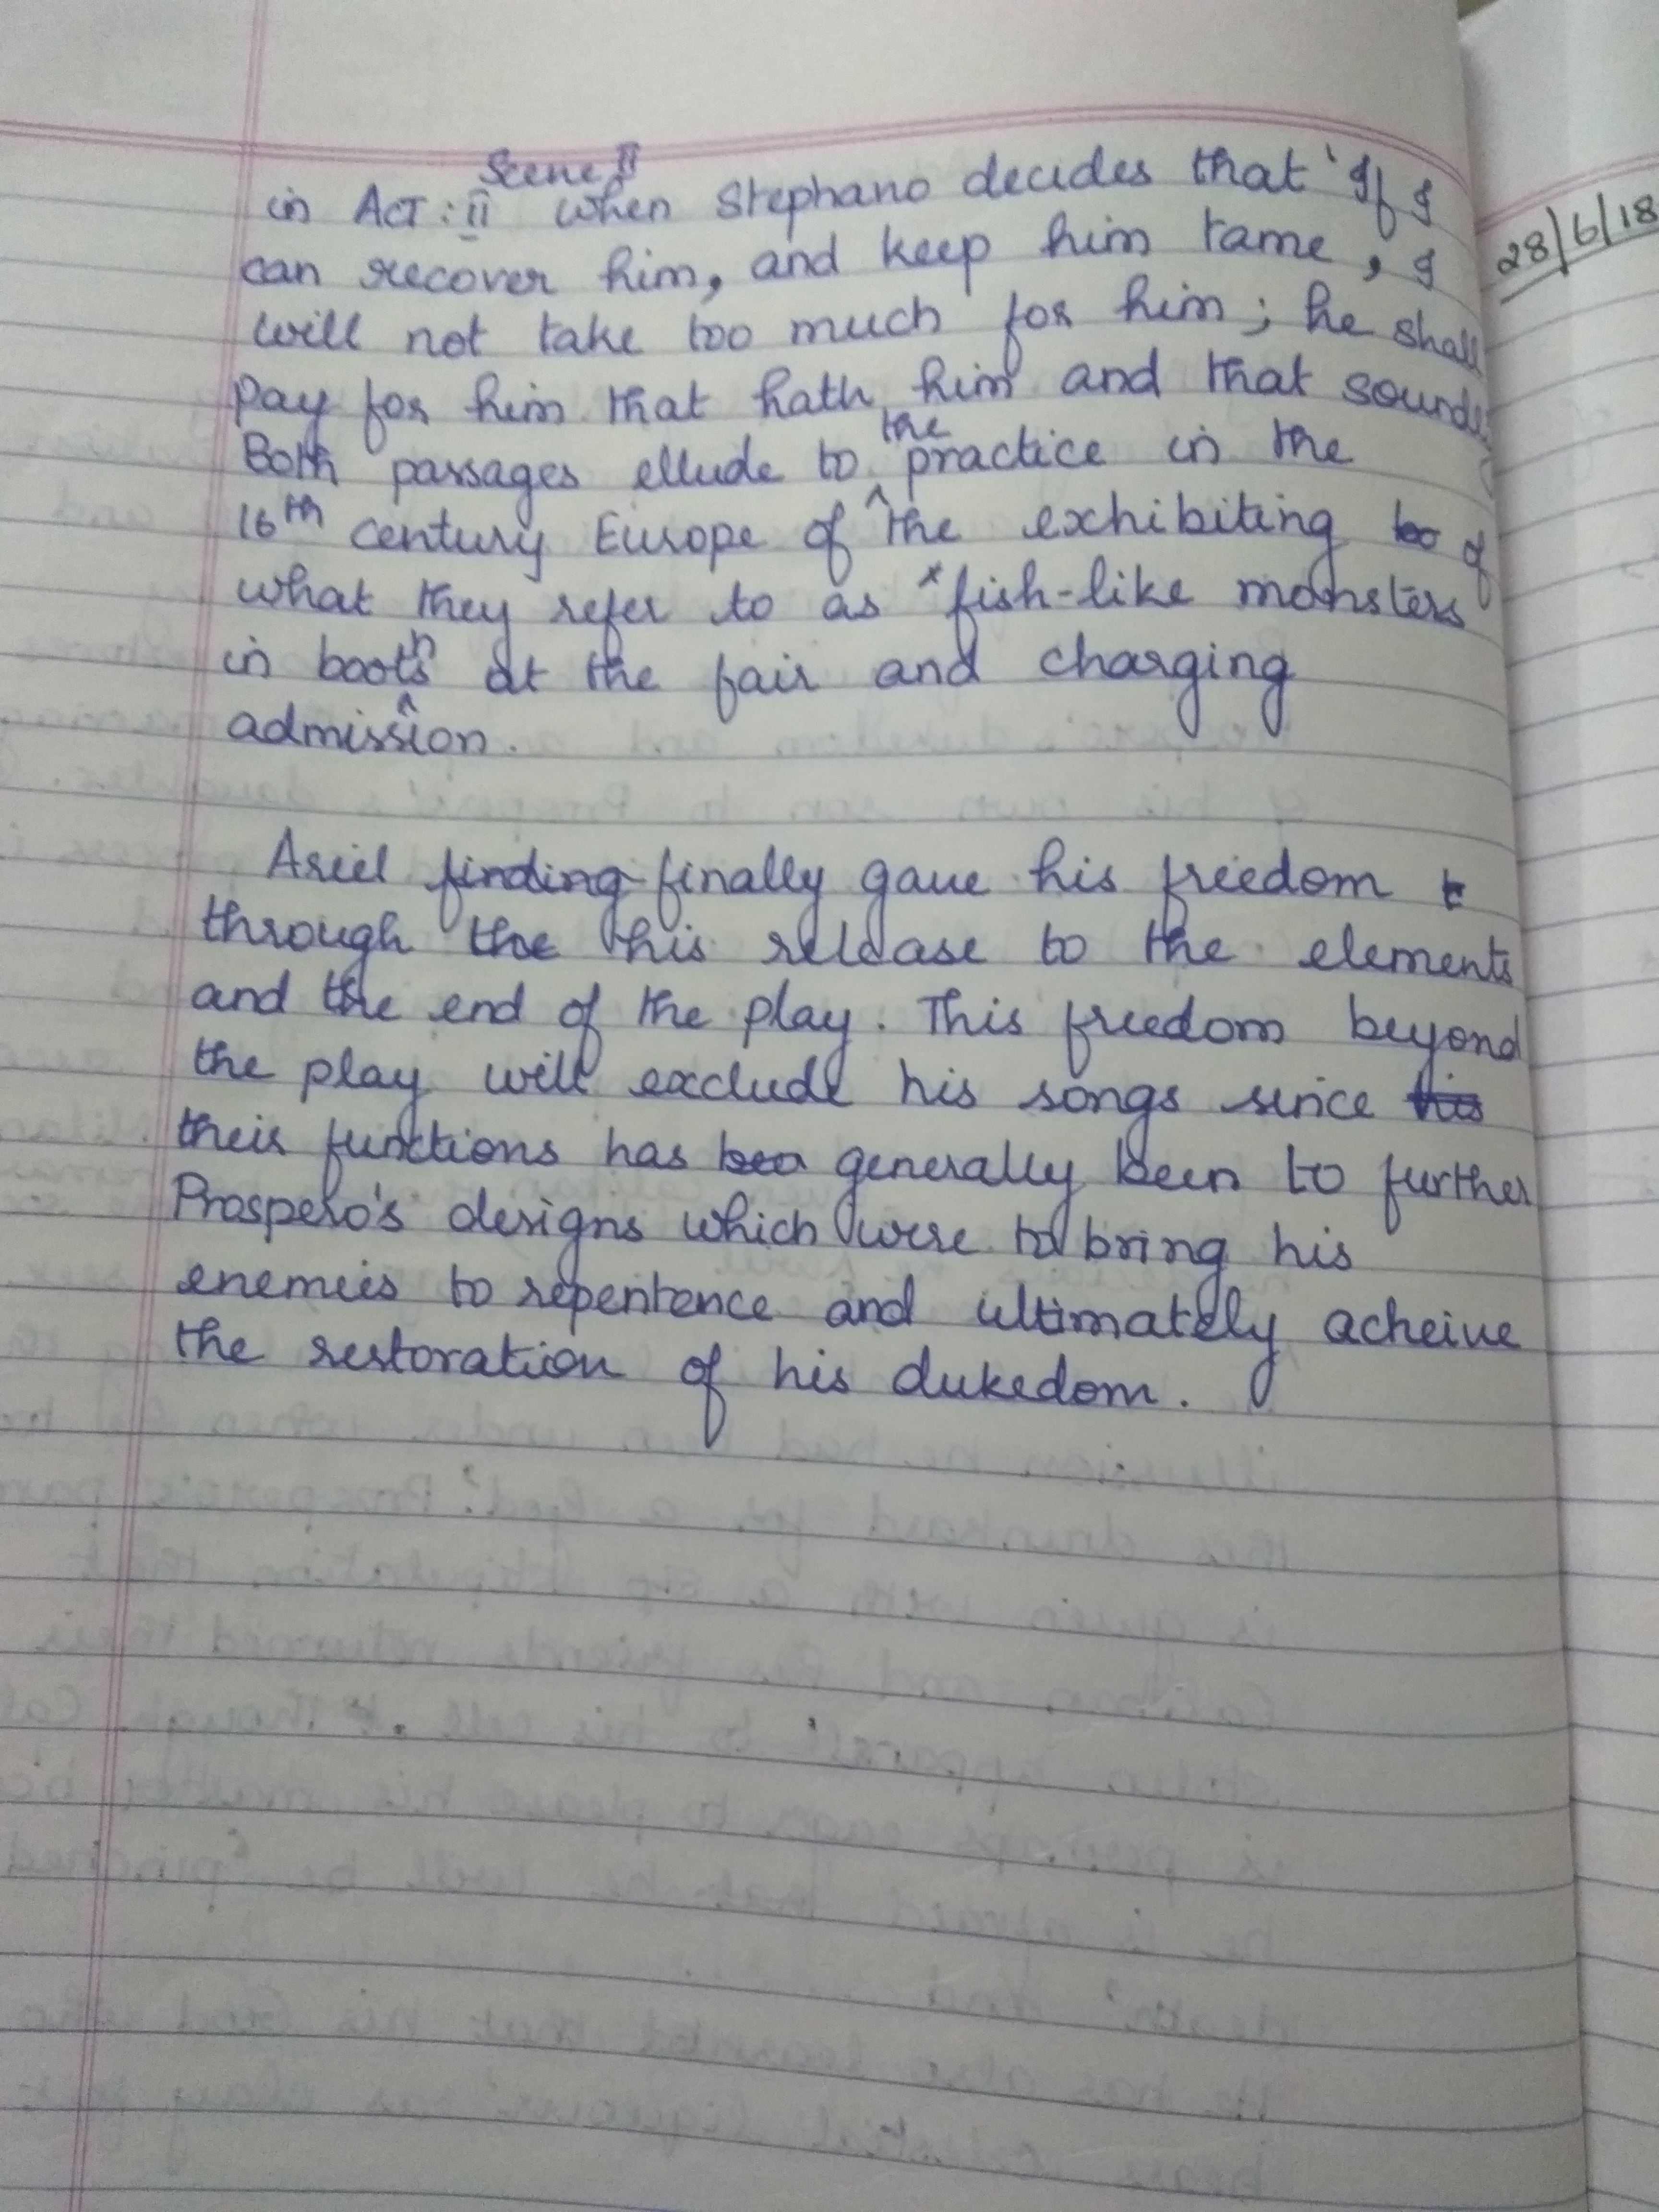 Scene II
in ACT: II when Stephano decides that 'If I
can recover him, and keep him tame, I
will not take too much for him; he shall
pay for him that hath him and that soundly
the
Both passages ellude to practice in the
16th century Europe of the exhibiting to of
what they refer to as "fish-like monsters
in booths at the fair and charging
admission.
Ariel finding finally gave his freedom t
through the his release to the elements
and the end of the play. This freedom beyond
the play will exclude his songs since his
their functions has bea generally been to further
Prospero's designs which were to bring his
enemies to repentence and ultimately acheive
the restoration of his dukedom.
28/6/18